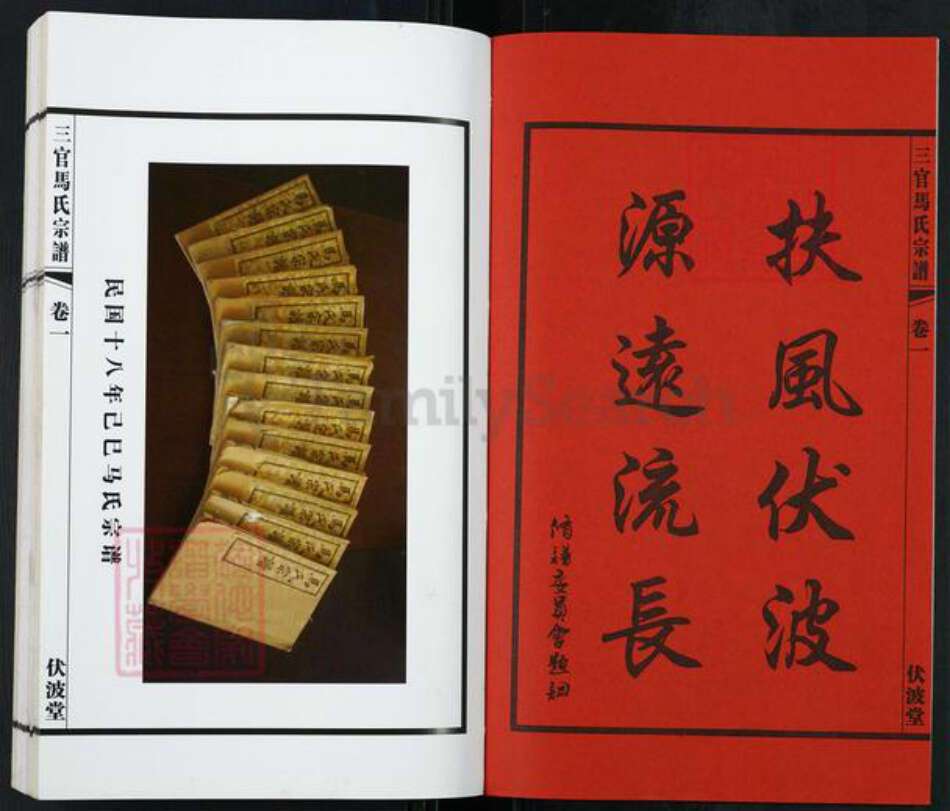 三官馬氏宗譜
卷一
伏波堂
扶風伏波
源遠流長
修譜委員會題
三官馬氏宗譜
卷一
伏波堂
民国十八年己巳马氏宗谱
馬氏宗譜